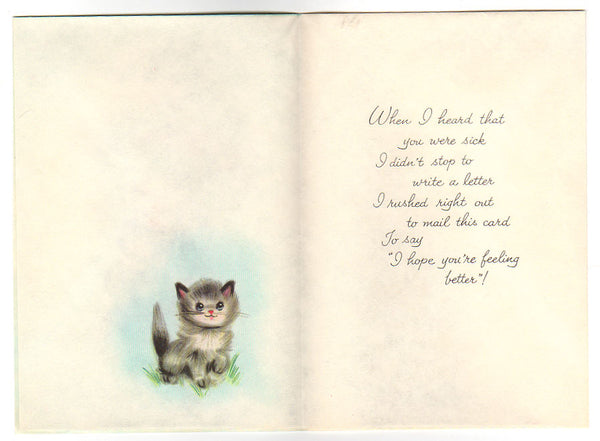 When I heard that
you were sick
I didn't stop to
write a letter
I rushed right out
to mail this card
To say
"I hope you're feeling
better"!